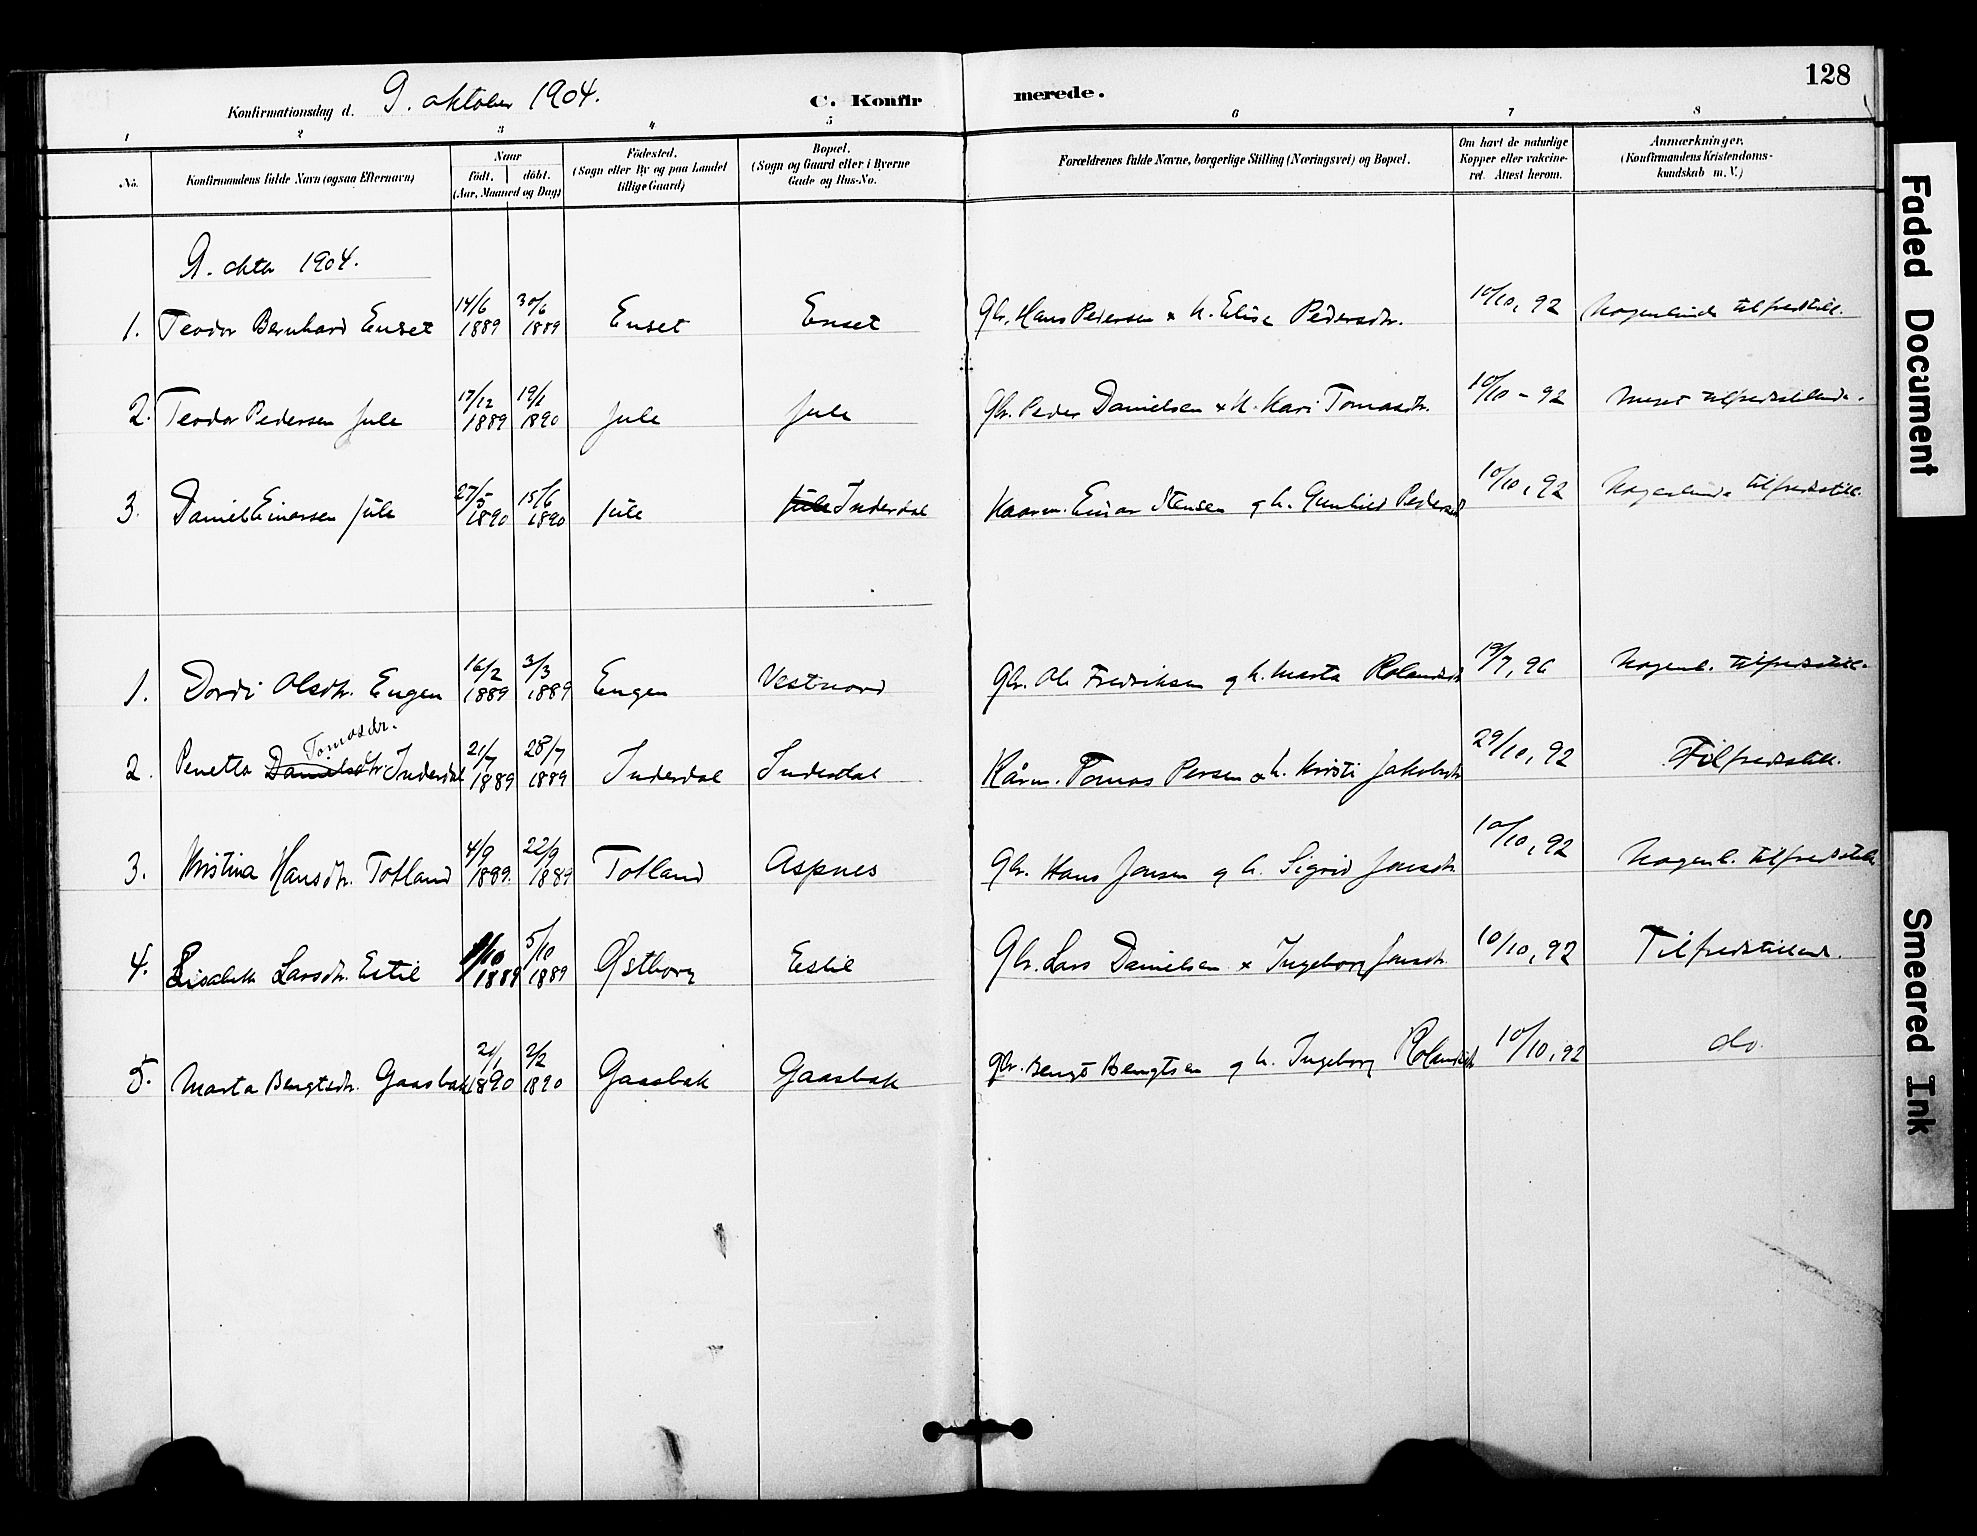 128
Konfirmationsdag d. 9. oktober 1904. C. Konfirmerede.
1 2 3 4 5 6 7 8
No. Konfirmandens fulde Navn (ogsaa Efternavn) Naar födt. döbt. (Aar, Maaned og Dag) Födested. (Sogn eller By og paa Landet tillige Gaard) Bopæl. (Sogn og Gaard eller i Byerne Gade og Hus-No. Forældrenes fulde Navne, borgerlige Stilling (Næringsvei) og Bopæl. Om havt de naturlige Kopper eller vakcineret. Attest herom. Anmærkninger. (Konfirmandens Kristendomskundskab m. V.)
9. oktbr 1904.
1. Teodor Bernhard Enset 14/6 1889 30/6 1889 Enset Enset Gbr. Hans Pedersen & h. Elise Pedersdtr. 10/10, 92 Nogenlunde tilfredstill.
2. Teodor Pedersen Jule 17/12 1889 19/1 1890 Jule Jule Gbr. Peder Danielsen & h. Kari Tomasdtr. 10/10 - 92 Meget tilfredstillende.
3. Daniel Einarsen Jule 27/5 1890 15/6 1890 Jule Jule Inderdal Kaarm. Einar Stensen og h. Gunhild Pedersd 10/10, 92 Nogenlunde tilfredsstill.
1. Dordi Olsdtr. Engen 16/2 1889 3/3 1889 Engen Vestnord Gbr. Ole Fredriksen og h. Marta Rolandsdt 19/7, 96 Nogenl. tilfredsstill.
2. Penetta Danielsdtr Tomasdtr. Inderdal 21/7 1889 28/7 1889 Inderdal Inderdal Kårm. Tomas Persen & h. Kristi Jakobsdtr 29/10, 92 Tilfredsstill.
3. Kristina Hansdtr. Totland 4/9 1889. 22/9 1889 Totland Aspnes Gbr. Hans Jonsen og h. Sigrid Jonsdtr 10/10, 92 Nogenl. tilfredsstill
4. Elisabeth Larsdtr. Estil 1/10 1889 5/10 1889 Østborg Estil Gbr. Lars Danielsen & Ingeborg Jonsdtr. 10/10, 92 Tilfredstillend.
5. Marta Bengtsdtr. Gaasbak 21/1 1890 2/2 1890 Gaasbak Gaasbak Gbr. Bengt Bengtsen og h. Ingeborg Rolandsdt 10/10, 92 do.
Faded Document
Smeared Ink